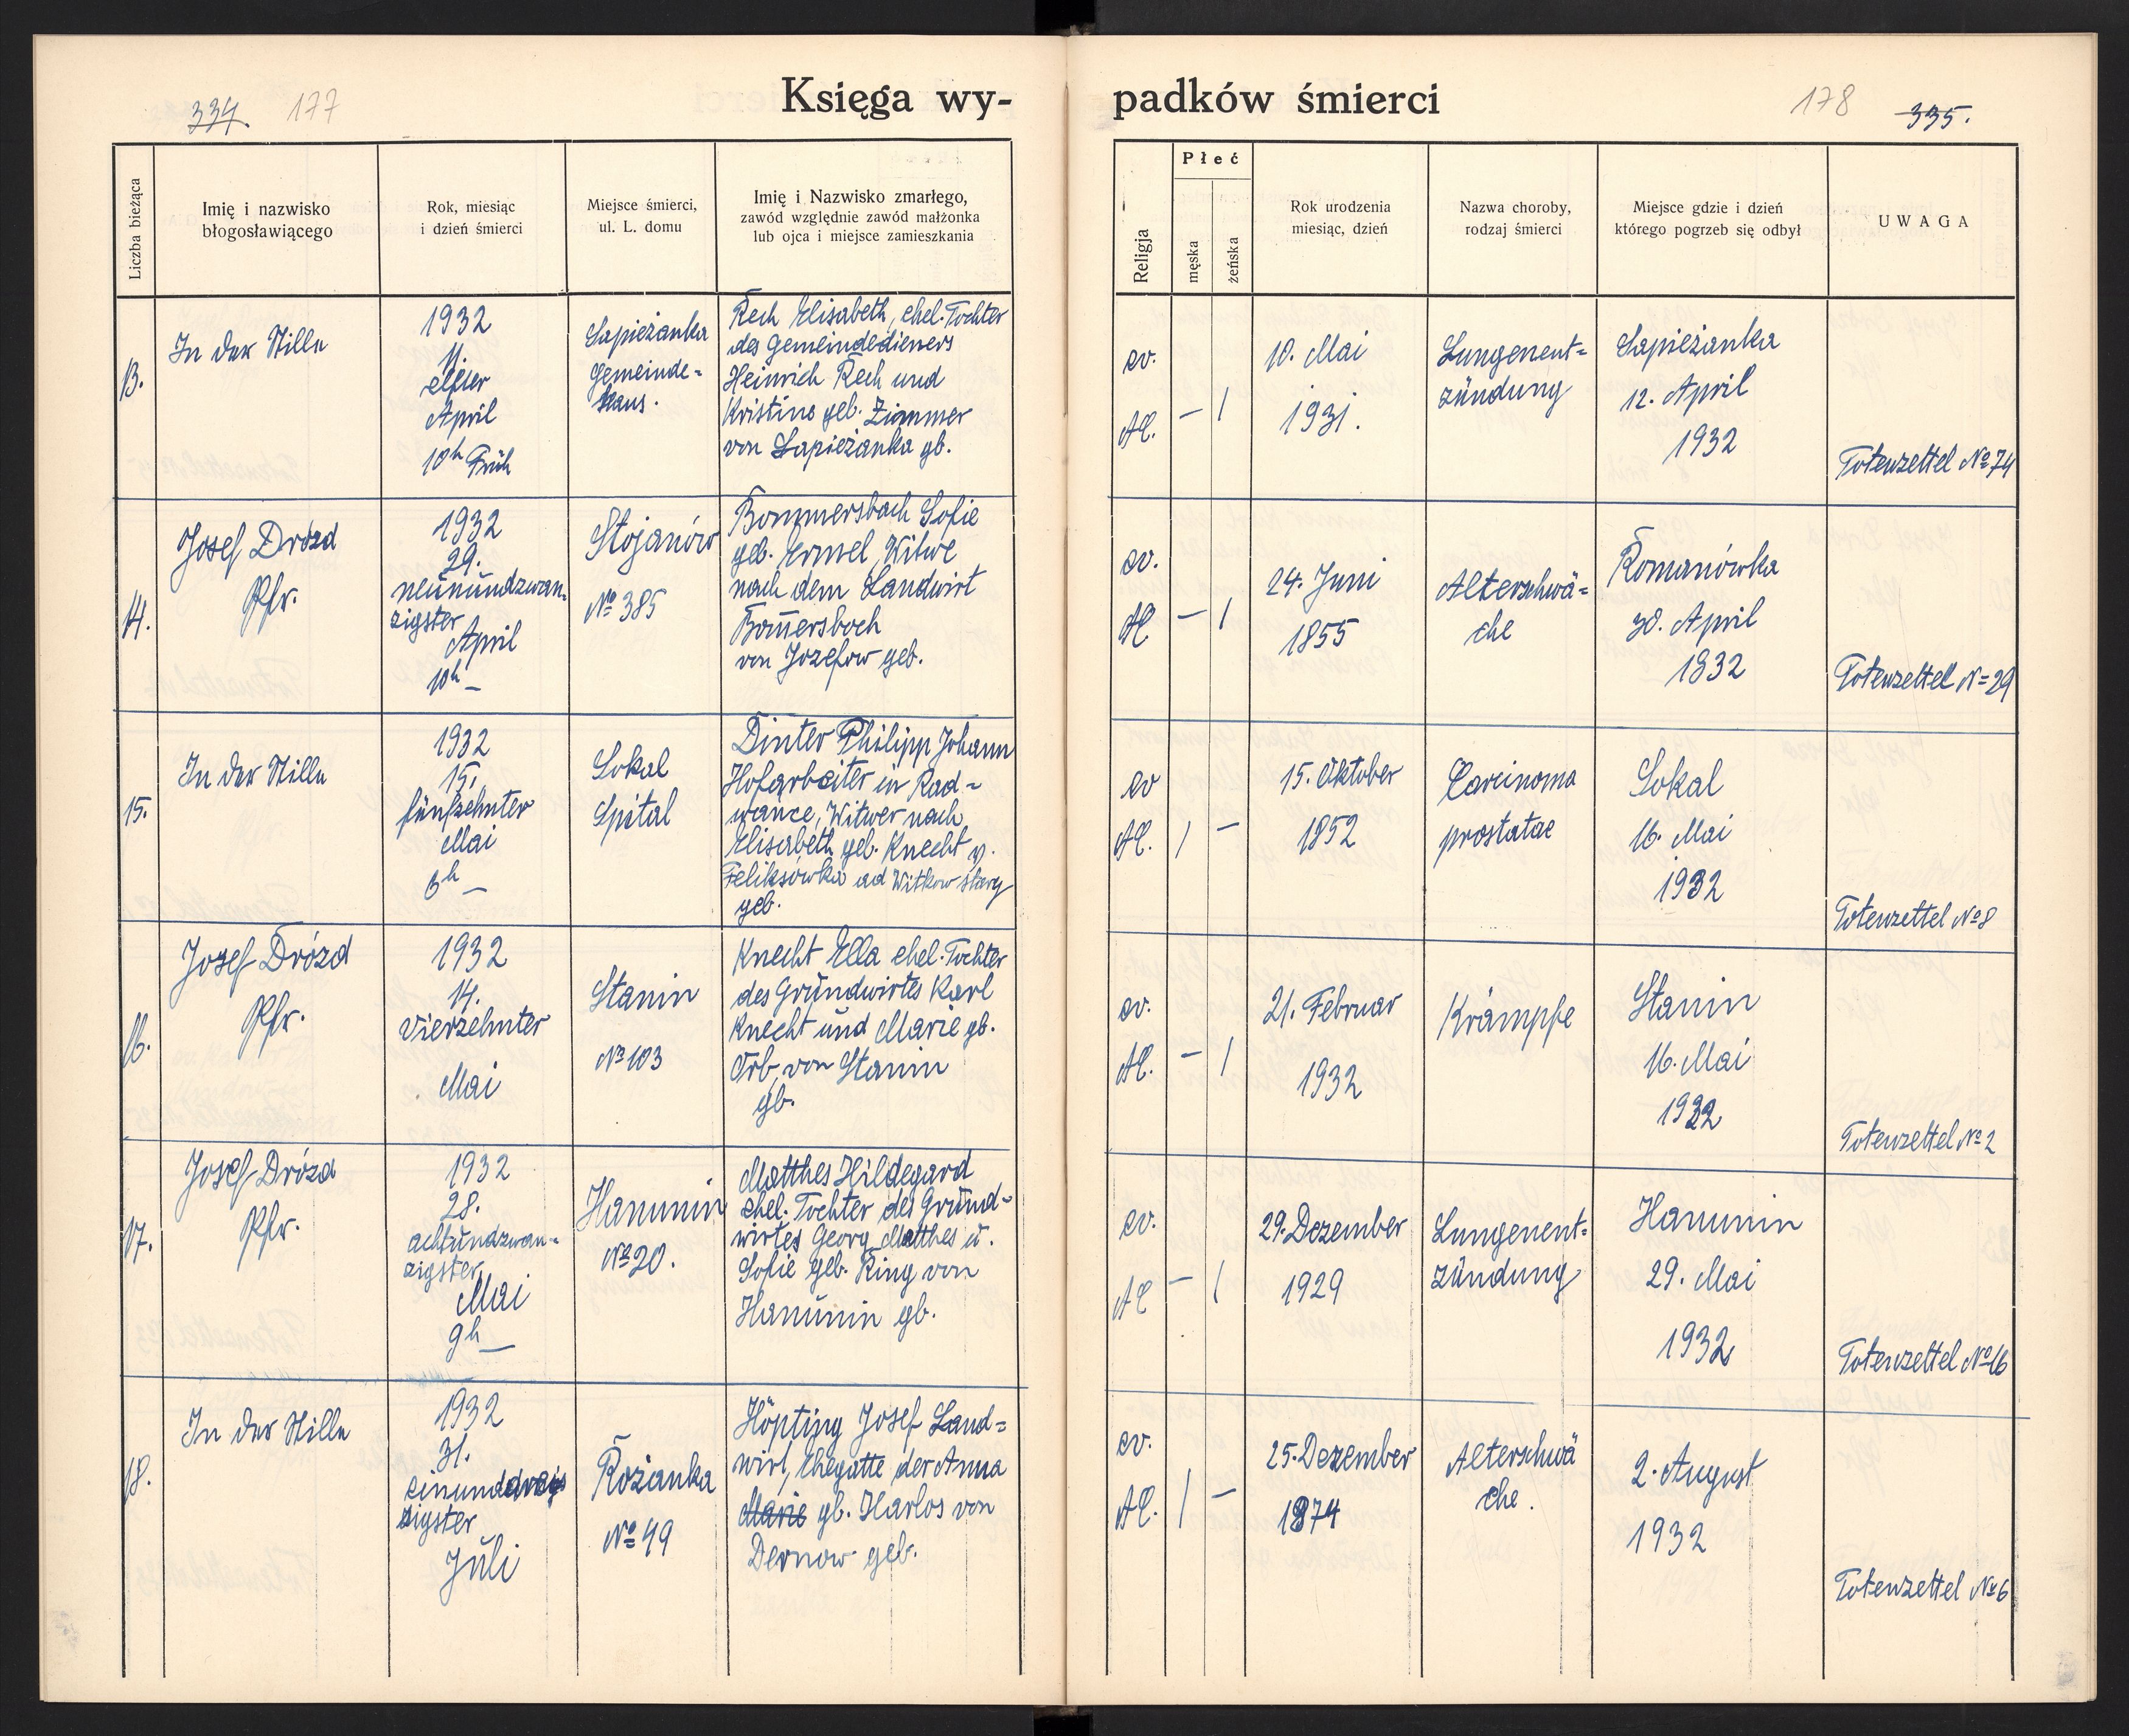 334. 177
Księga wy-
padków śmierci
178 335.
Liczba bieżąca
Imię i nazwisko
błogosławiącego
Rok, miesiąc
i dzień śmierci
Miejsce śmierci,
ul. L. domu
Imię i Nazwisko zmarłego,
zawód względnie zawód małżonka
lub ojca i miejsce zamieszkania
Religja
Płeć
męska
żeńska
Rok urodzenia
miesiąc, dzień
Nazwa choroby,
rodzaj śmierci
Miejsce gdzie i dzień
którego pogrzeb się odbył
UWAGA
13.
In der Stille
1932
11.
elfter
April
10h Früh
Sapieżanka
Gemeinde=
haus.
Rech Elisabeth, ehel. Tochter
des Gemeindedieners
Heinrich Rech und
Kristine geb. Zimmer
von Sapieżanka gb.
ev.
AC.
— 1
10. Mai
1931.
Lungenent=
zündung
Sapieżanka
12. April
1932
Totenzettel No 74
14.
Josef Drózd
Pfr.
1932
29.
neunundzwan-
zigster
April
10h —
Stojanów
No 385
Bommersbach Sofie
geb. Ermel, Witwe
nach dem Landwirt
Bom̅ersbach
von Jozefow geb.
ev.
AC
— 1
24. Juni
1855
Alterschwä=
che
Romanówka
30. April
1832
Totenzettel N= 29
15.
In der Stille
1932
15.
fünfzehnter
Mai
6h —
Sokal
Spital
Dinter Philipp Johann
Hofarbeiter in Rad-
wance, Witwer nach
Elisabeth geb. Knecht v.
Feliksówka ad Witkow stary
geb.
ev
AC.
1 —
15. Oktober
1852
Carcinoma
prostatae
Sokal
16. Mai
1932
Totenzettel No 8
16.
Josef Drózd
Pfr.
1932
14.
vierzehnter
Mai
Stanin
No 103
Knecht Ella ehel. Tochter
des Grundwirtes Karl
Knecht und Marie gb.
Orb, von Stanin
gb.
ev.
AC.
— 1
21. Februar
1932
Krämpfe
Stanin
16. Mai
1932
Totenzettel No 2
17.
Josef Drózd
Pfr.
1932
28.
achtundzwan-
zigster
Mai
9h —
Hanunin
No 20.
Matthes Hildegard
ehel. Tochter des Grund-
wirtes Georg Matthes u.
Sofie geb. Ring von
Hanunin gb.
ev.
AC
— 1
29. Dezember
1929
Lungenent=
zündung
Hanunin
29. Mai
1932
Totenzettel No 16
18.
In der Stille
1932
31.
einunddreis
zigster
Juli
Rożanka
No 49
Höpting Josef Land=
wirt, Ehegatte der Anna
Marie gb. Harlos von
Dernow geb.
ev.
AC.
1 —
25. Dezember
1874
Alterschwä
che.
2. August
1932
Totenzettel No 6